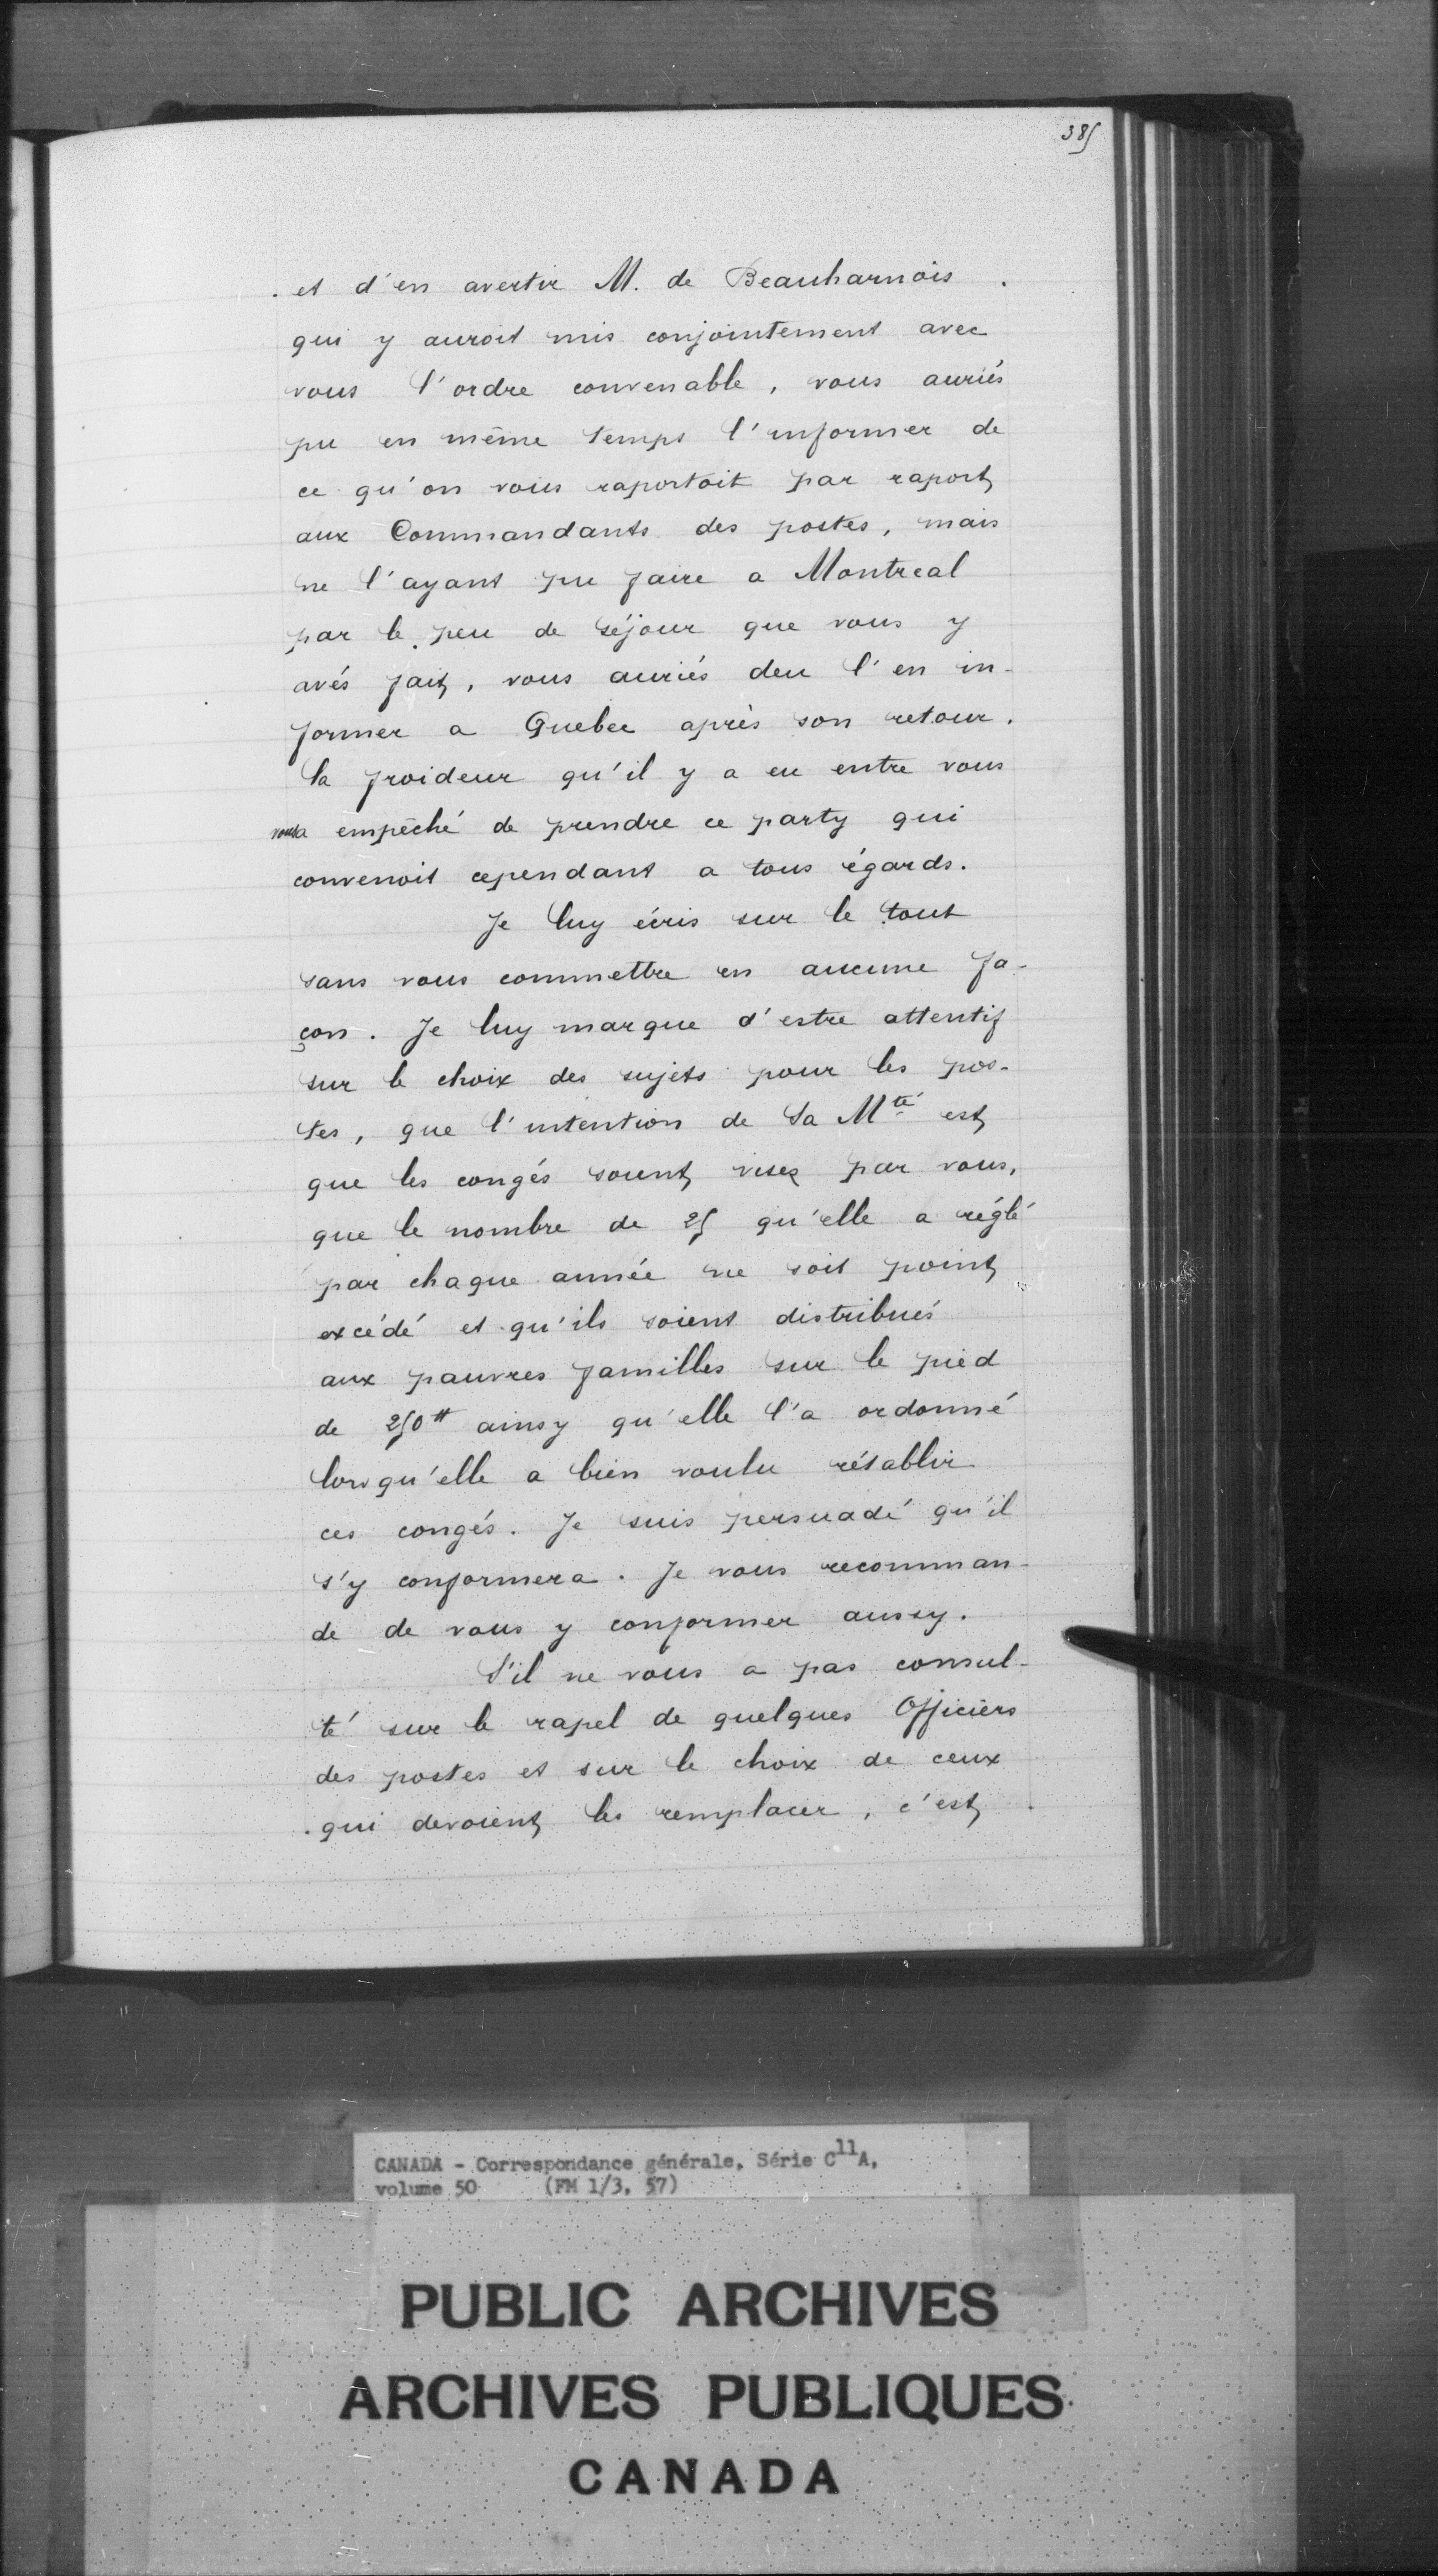 385
et d'en avertir M. de Beauharnois
qui y auroit mis conjointement avec
vous l'ordre convenable, vous auriés
pu en même temps l'informer de
ce qu'on vous raportoit par raport
aux Commandants des postes, mais
ne l'ayant pu faire a Montreal
par le peu de séjour que vous y
avés fait, vous auriés deu l'en in-
former a Quebec après son retour.
la froideur qu'il y a eu entre vous
vous a empêché de prendre ce party qui
convenoit cependant a tous égards.
Je luy écris sur le tout
sans vous commettre en aucune fa-
çon. Je luy marque d'estre attentif
sur le choix des sujets pour les pos-
tes, que l'intention de Sa Mté est
que les congés soient visez par vous,
que le nombre de 25 qu'elle a réglé
par chaque année ne soit point
excédé et qu'ils soient distribués
aux pauvres familles sur le pied
de 250tt ainsy qu'elle l'a ordonné
lorsqu'elle a bien voulu rétablir
ces congés. Je suis persuadé qu'il
s'y conformera. Je vous recomman-
de de vous y conformer aussy.
S'il ne vous a pas consul-
té sur le rapel de quelques Officiers
des postes et sur le choix de ceux
qui devoient les remplacer, c'est
CANADA - Correspondance générale, Série C11A,
volume 50 (FM 1/3, 57)
PUBLIC ARCHIVES
ARCHIVES PUBLIQUES
CANADA